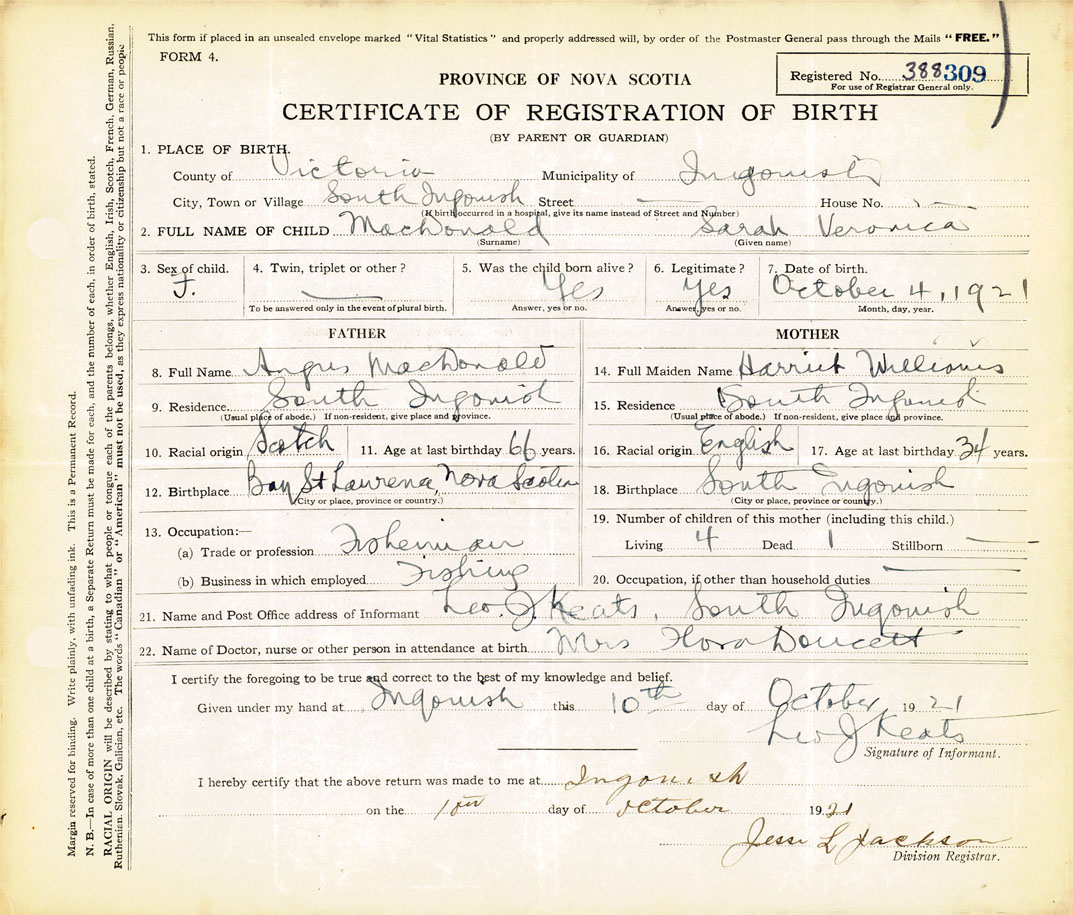 This form if placed in an unsealed envelope marked "Vital Statistics" and properly addressed will, by order of the Postmaster General pass through the Mails "FREE."
FORM 4.
Registered No. 388309
For use of Registrar General only.
PROVINCE OF NOVA SCOTIA
CERTIFICATE OF REGISTRATION OF BIRTH
(BY PARENT OR GUARDIAN)
1. PLACE OF BIRTH.
County of Victoria Municipality of Ingonish
City, Town or Village South Ingonish Street House No.
(If birth occurred in a hospital, give its name instead of Street and Number)
2. FULL NAME OF CHILD MacDonald Sarah Veronica
(Surname) (Given name)
3. Sex of child. 4. Twin, triplet or other? 5. Was the child born alive? 6. Legitimate? 7. Date of birth.
F. Yes Yes October 4, 1921
To be answered only in the event of plural birth. Answer, yes or no. Answer, yes or no. Month, day, year.
FATHER
8. Full Name Angus MacDonald
9. Residence South Ingonish
(Usual place of abode.) If non-resident, give place and province.
10. Racial origin Scotch 11. Age at last birthday 66 years.
12. Birthplace Bay St Lawrence, Nova Scotia
(City or place, province or country.)
13. Occupation:—
(a) Trade or profession Fisherman
(b) Business in which employed Fishing
MOTHER
14. Full Maiden Name Harriet Williams
15. Residence South Ingonish
(Usual place of abode.) If non-resident, give place and province.
16. Racial origin English 17. Age at last birthday 34 years.
18. Birthplace South Ingonish
(City or place, province or country.)
19. Number of children of this mother (including this child.)
Living 4 Dead 1 Stillborn
20. Occupation, if other than household duties
21. Name and Post Office address of Informant Leo. J. Keats, South Ingonish
22. Name of Doctor, nurse or other person in attendance at birth Mrs Flora Doucett
I certify the foregoing to be true and correct to the best of my knowledge and belief.
Given under my hand at Ingonish this 10th day of October, 1921
Leo J Keats
Signature of Informant.
I hereby certify that the above return was made to me at Ingonish
on the day of October 1921
Jesse L Jackson
Division Registrar.
Margin reserved for binding. Write plainly, with unfading ink. This is a Permanent Record.
N. B.—In case of more than one child at a birth, a Separate Return must be made for each, and the number of each, in order of birth, stated.
RACIAL ORIGIN will be described by stating to what people or tongue each of the parents belongs, whether English, Irish, Scotch, French, German, Russian,
Ruthenian, Slovak, Galician, etc. The words "Canadian" or "American" must not be used, as they express nationality or citizenship but not a race or people